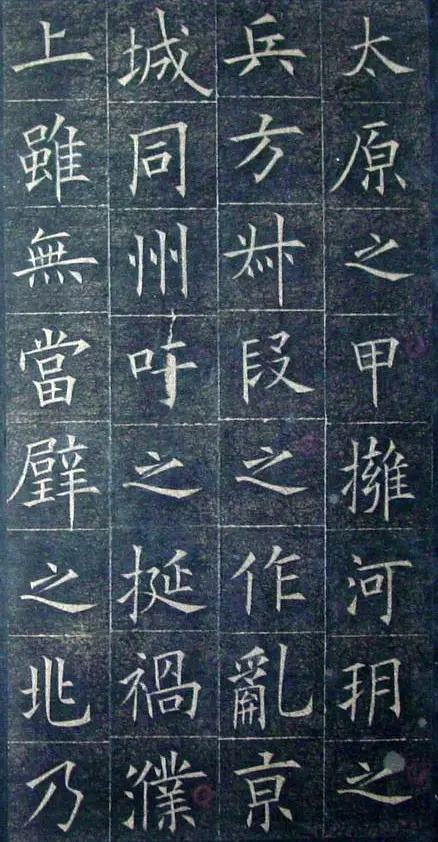 太原之甲擁河朔之
兵方叔段之作亂京
城同州吁之挺禍濮
上雖無當璧之兆乃